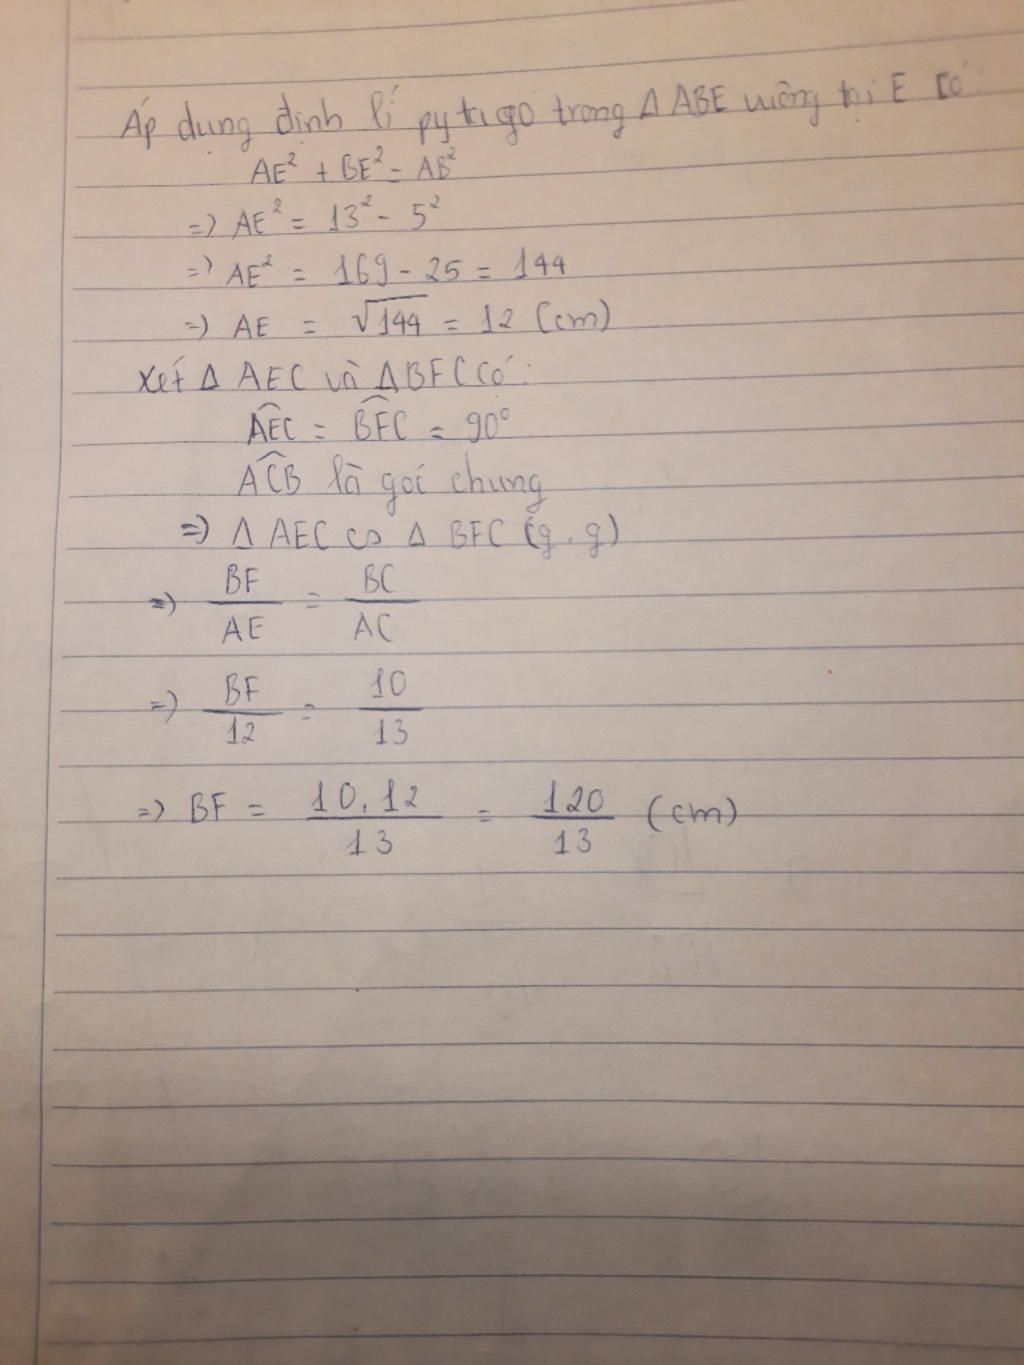 Áp dụng định lí pytago trong Δ ABE vuông tại E có:
AE² + BE² = AB²
=) AE² = 13² - 5²
=) AE² = 169 - 25 = 144
=) AE = √144 = 12 (cm)
Xét Δ AEC và Δ BFC có:
AEC = BFC = 90°
ACB là goć chung
=) Δ AEC ∽ Δ BFC (g.g)
=) BF/AE = BC/AC
=) BF/12 = 10/13
=) BF = 10.12/13 = 120/13 (cm)